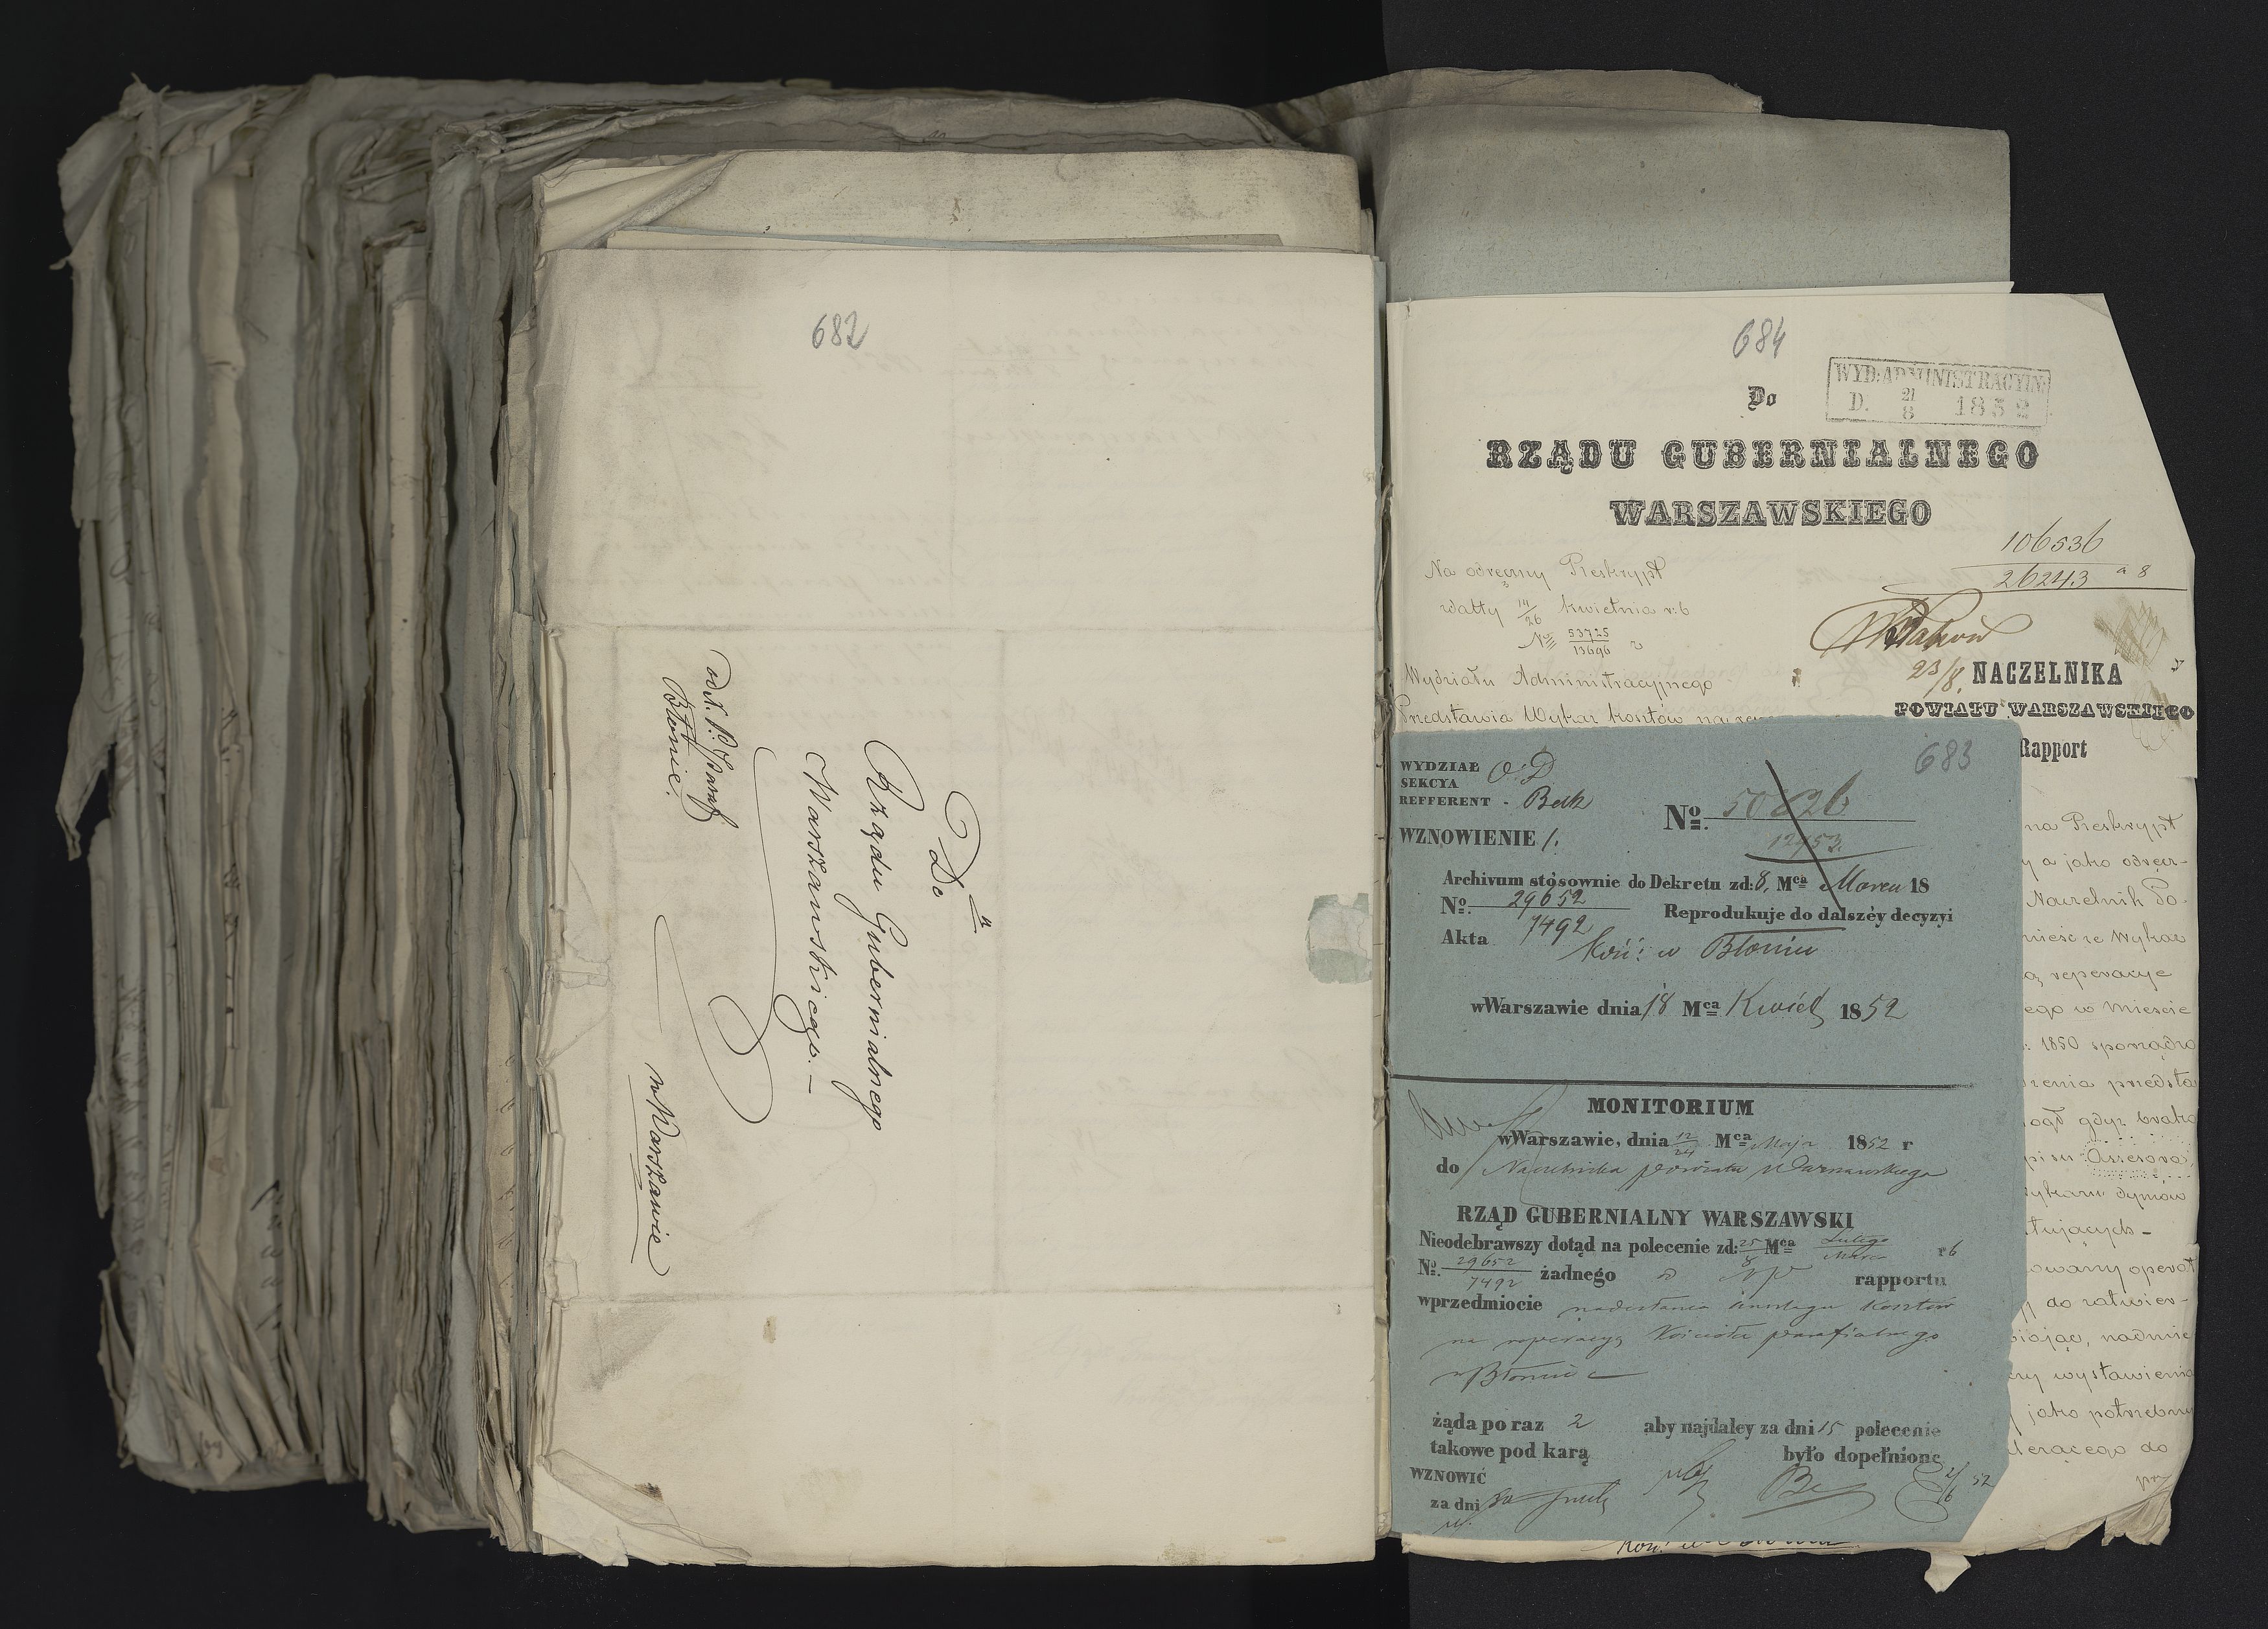 682
Do
Rządu Gubernialnego
Warszawskiego.—
od N. P. Paraf.
Błonie.
w Warszawie
684
Do
WYD: ADMINISTRACYIN:
D. 21/8 1852
RZĄDU GUBERNIALNEGO
WARSZAWSKIEGO
106536
26243 a 8
Na odręczny Reskrypt
kwietnia r: b
No 53725/13696
23/8.
Wydziału Administracyjnego
Przedstawia Wykaz kosztów na
NACZELNIKA
POWIATU WARSZAWSKIEGO
Rapport
na Reskrypt
y a jako odręcz-
Naczelnik Po-
nieść że Wykaz
ą reperacye
ego w Mieście
1850 sporządzo
dzenia przedsta
ogł gdyż brako
pisu Assessora
wykazu dymów
tujących-
owany operat
do zatwier-
iając, nadmie
wystawienia
jako potrzebny
do
683
WYDZIAŁ O. D
SEKCYA
REFFERENT - Bek
WZNOWIENIE 1.
No. 50826
12453.
Archivum stósownie do Dekretu zd: 8, Mca Marca 18
No. 29652
7492
Reprodukuje do dalszéy decyzyi
Akta
Koś: w Błoniu
w Warszawie dnia 18 Mca Kwiet 1852
MONITORIUM
w Warszawie, dnia 12/24 Mca Maja 1852 r
do Naczelnika powiatu Warszawskiego
RZĄD GUBERNIALNY WARSZAWSKI
Nieodebrawszy dotąd na polecenie zd: 25/8 Mca Lutego/Marca r b
No. 29652/7492 żadnego rapportu
wprzedmiocie nadesłania kosztów
na reperacyą Kościoła parafialnego
w Błoniu
żąda po raz 2 aby najdaley za dni 15 polecenie
takowe pod karą było dopełnione
WZNOWIĆ
za dni 30
2/6 52